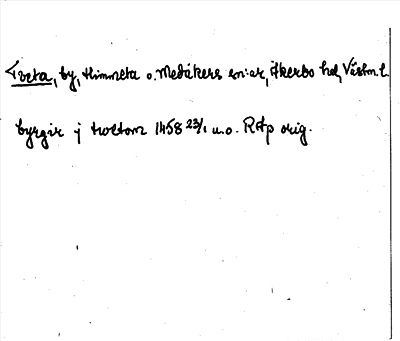 Tveta, by, Himmeta o. Medåkers sn:er, Åkerbo hd, Västm. l.
byrgir j twetom 1458 23/1 u.o. RAp orig.